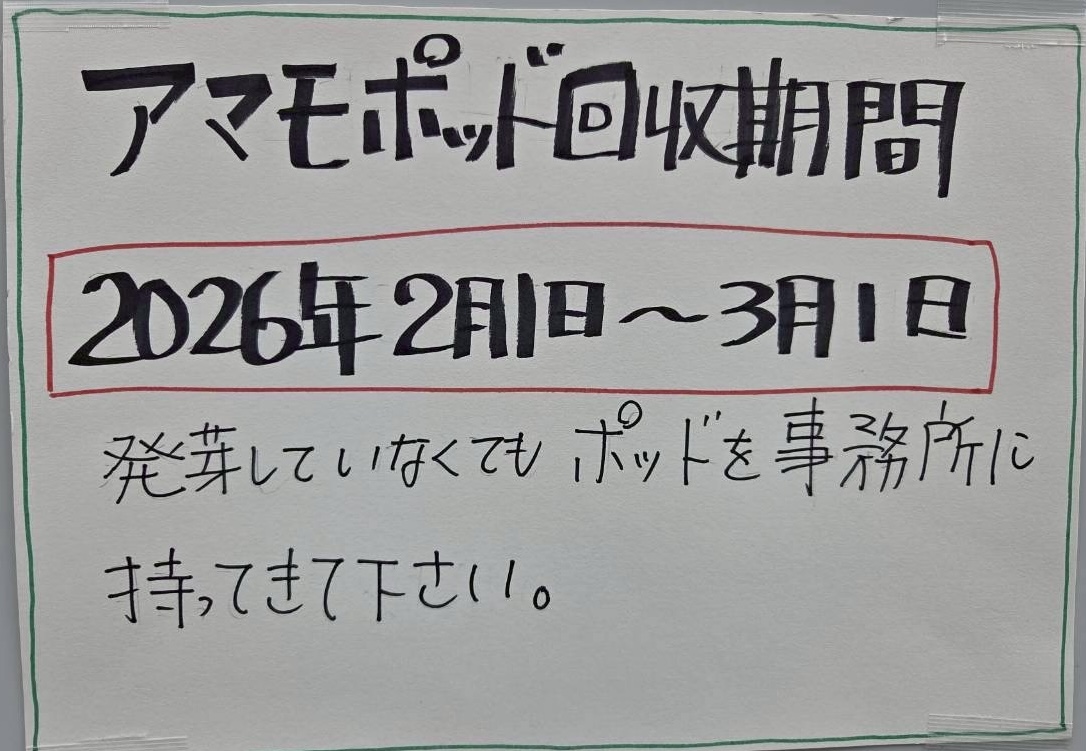 アマモポッド回収期間
2026年2月1日～3月1日
発芽していなくてもポッドを事務所に
持ってきて下さい。